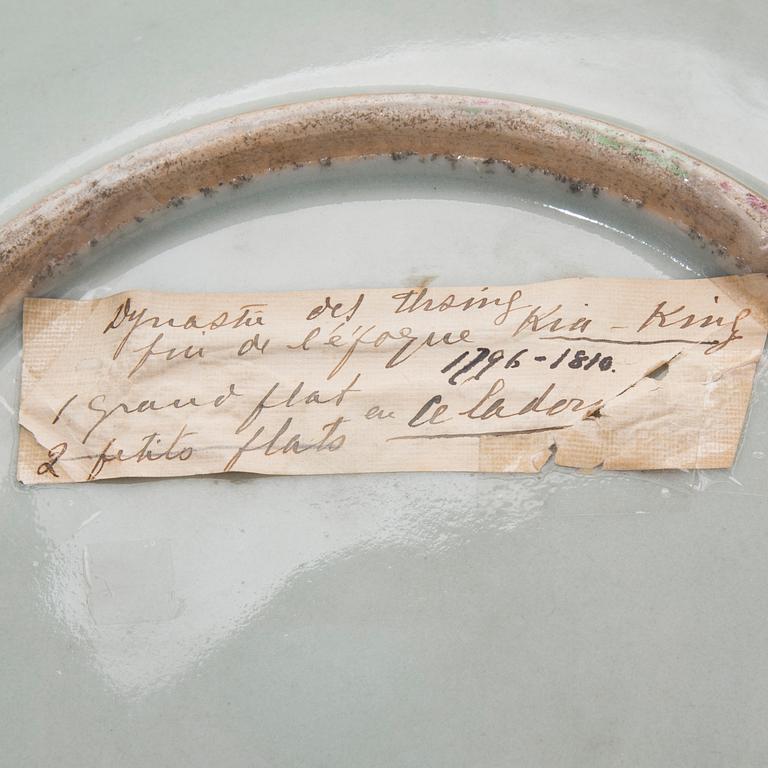 Dynastie des thsing Kia-King
fin de l'époque 1796-1810.
1 grand plat en Céladon
2 petits plats